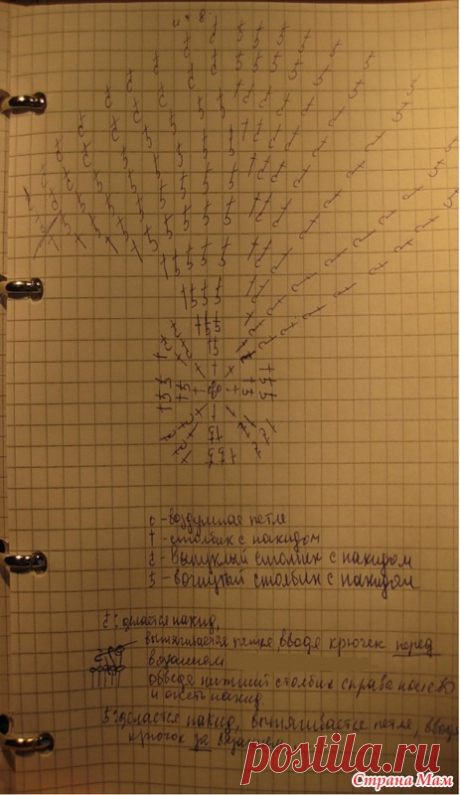 о - воздушная петля
† - столбик с накидом
- выпуклый столбик с накидом
- вогнутый столбик с накидом
делается накид,
вытягивается петля, вводя крючек перед
вязанием
обведя нижний столбик справа налево
и опять накид
делается накид, вытягивается петля, вводя
крючок за вязанием
postila.ru
Страна Мам